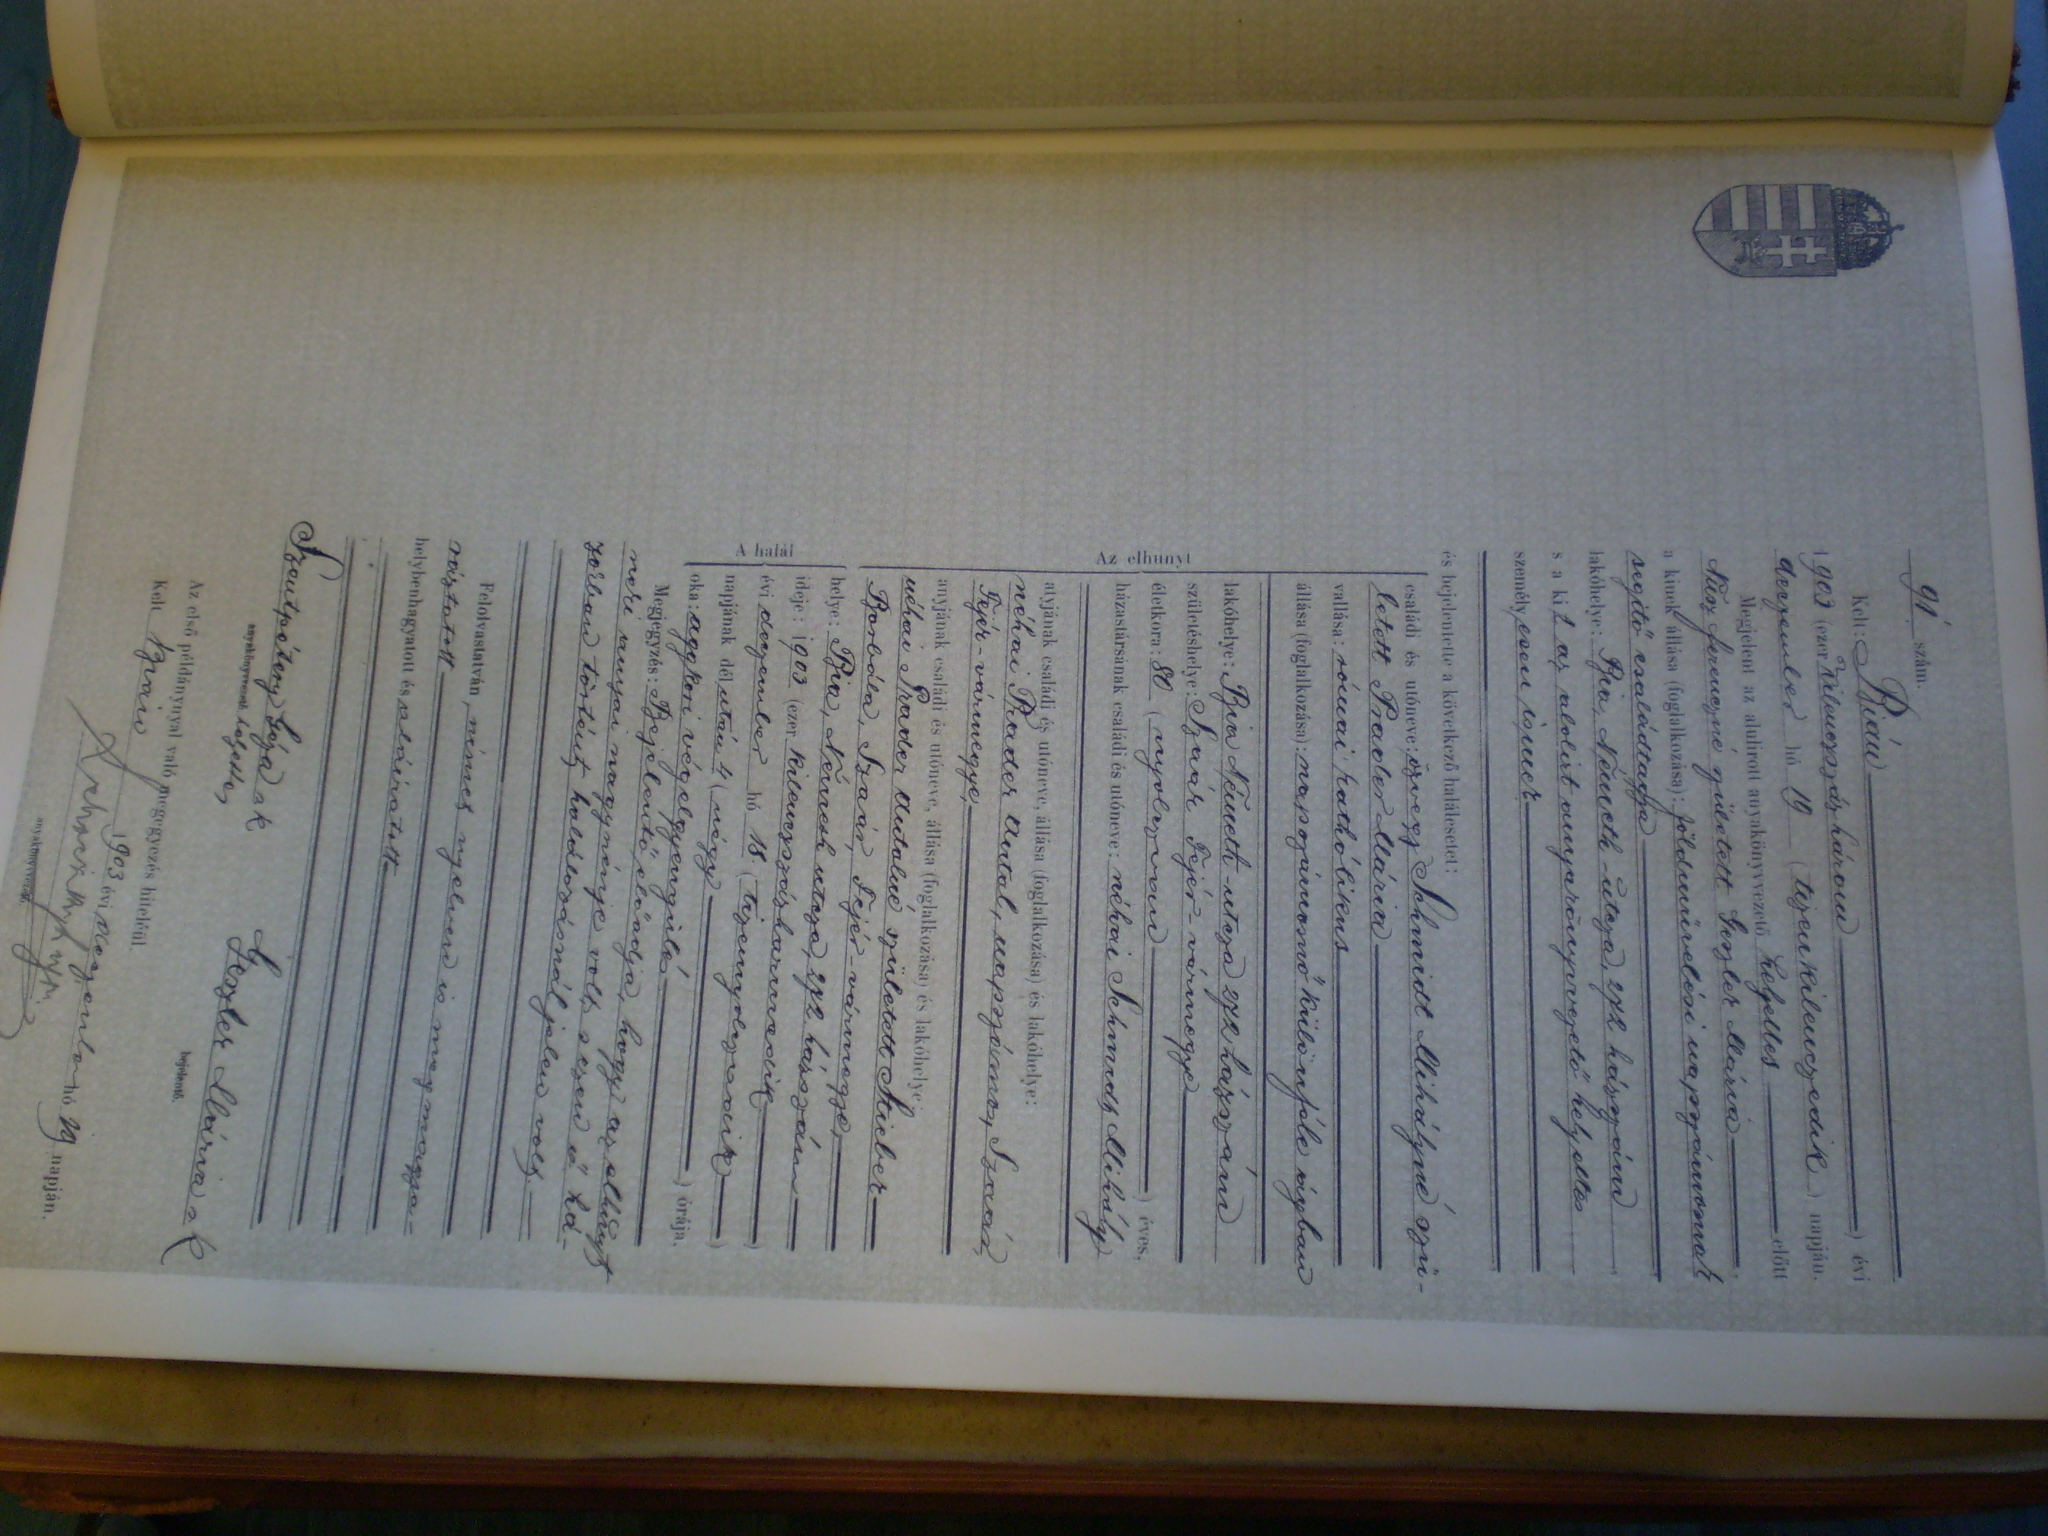 91 szám.
Kelt: Bián
1903 (ezer kilencszázhárom) évi
deczember hó 19 (tizenkilenczedik) napján.
Megjelent az alulirott anyakönyvvezető helyettes előtt
Ferenczné született Geszler Mária
a kinek állása (foglalkozása): földmivelési napszámosnak
segitő családtagja
lakóhelye: Bia, Németh-utcza, 272 házszám
s a kit az alolirt anyakönyvvezető helyettes
személyesen ismer
és bejelentette a következő halálesetet:
Az elhunyt
családi és utóneve: özvegy Schmidt Mihályné szü-
letett Prader Mária
vallása: római katholikus
állása (foglalkozása): napszámosnő különféle ágban
lakóhelye: Bia Németh-utcza 272 házszám
születéshelye: Szaár Fejér-vármegye
életkora: 80 (nyolczvan) éves,
házastársának családi és utóneve: néhai Schmidt Mihály
atyjának családi és utóneve, állása (foglalkozása) és lakóhelye:
néhai Prader Antal, napszámos, Szaár,
Fejér-vármegye,
anyjának családi és utóneve, állása (foglalkozása) és lakóhelye:
néhai Prader Antalné született Stieber
Borbála, Szaár, Fejér-vármegye,
A halál
helye: Bia, Németh utcza, 272 házszám
ideje: 1903 (ezer kilencszázharmadik
évi deczember hó 18 (tizennyolczadik)
napjának délután 4 (négy) órája.
oka: aggkori végelgyengülés
Megjegyzés: Bejelentő előadja, hogy az elhunyt
neki anyai nagynénje volt, s ezen ő há-
zában történt halálozásnál jelen volt.
Felolvastatván, német nyelven is megmagya-
ráztatott
helybenhagyatott és aláiratott.
Szentpétery Géza sk
anyakönyvvezető helyettes
Geszler Mária sk
bejelentő.
Az első példánynyal való megegyezés hiteléül.
Kelt Bián 1903 évi deczember hó 29 napján.
anyakönyvvezető.